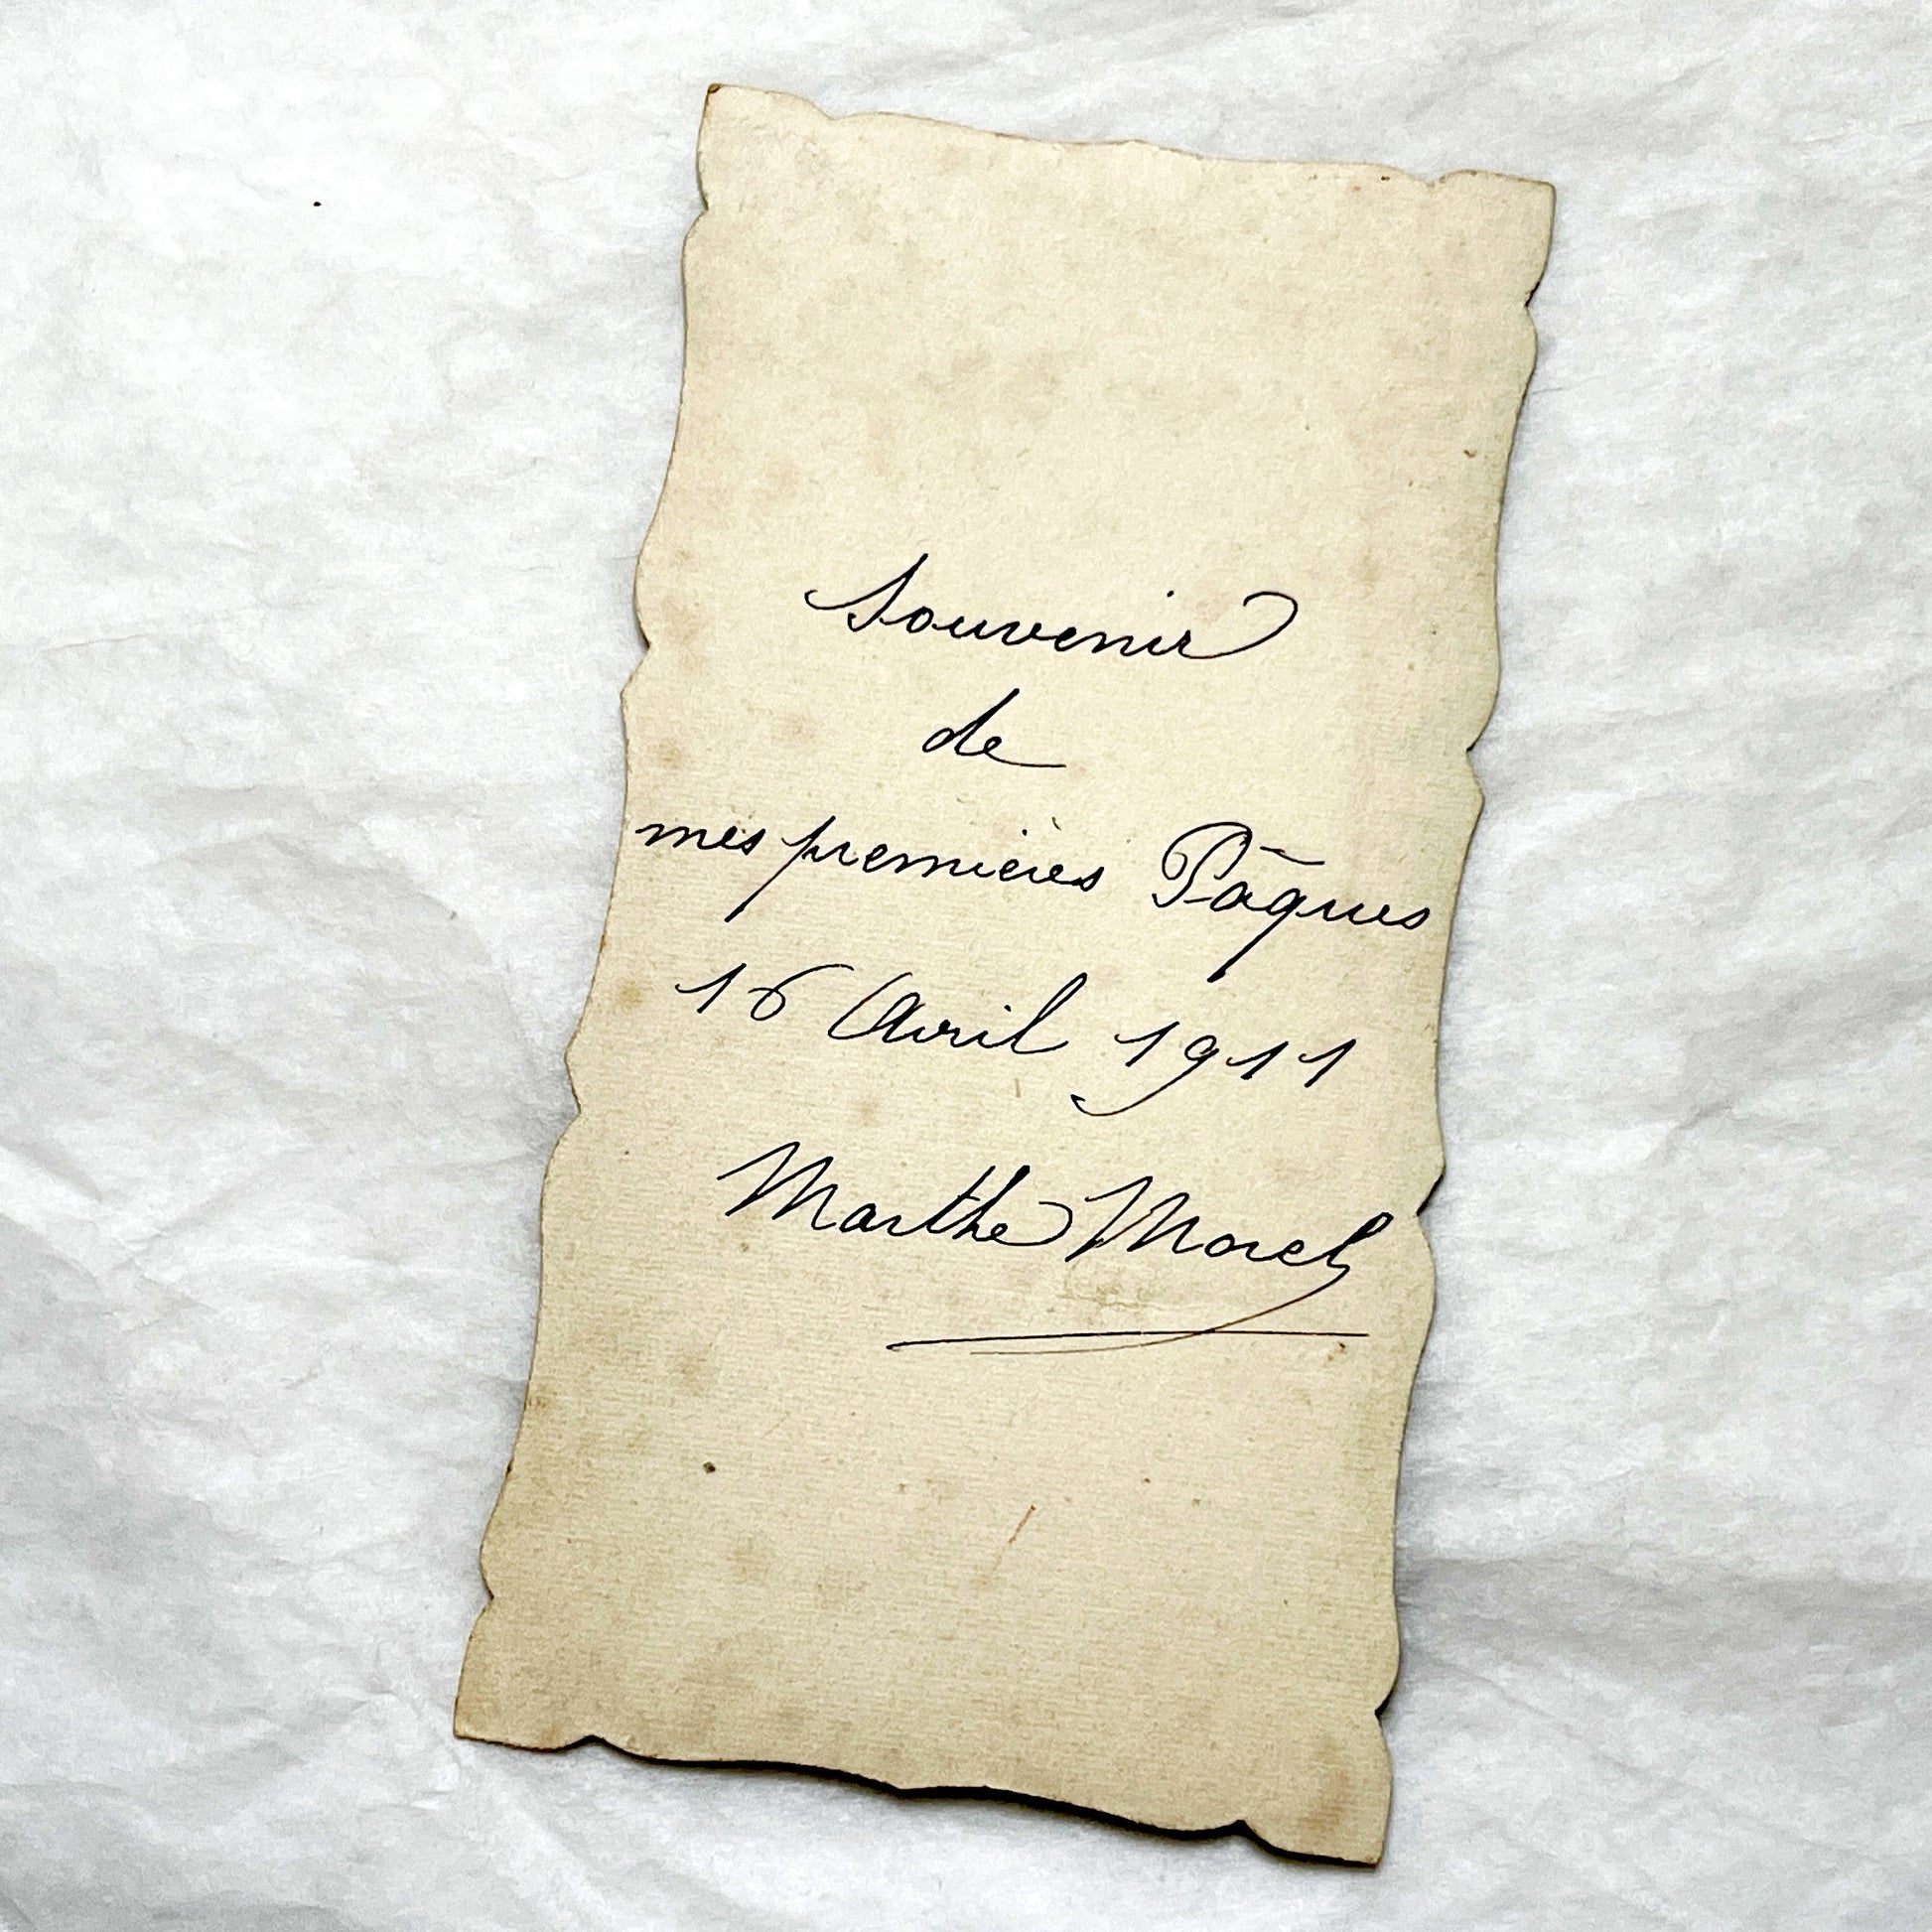 Souvenir
de
mes premières Pâques
16 Avril 1911
Marthe Morel